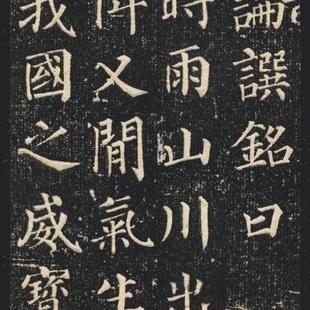 論譔銘曰
時雨山川出
降乂閒氣生
我國之威寶